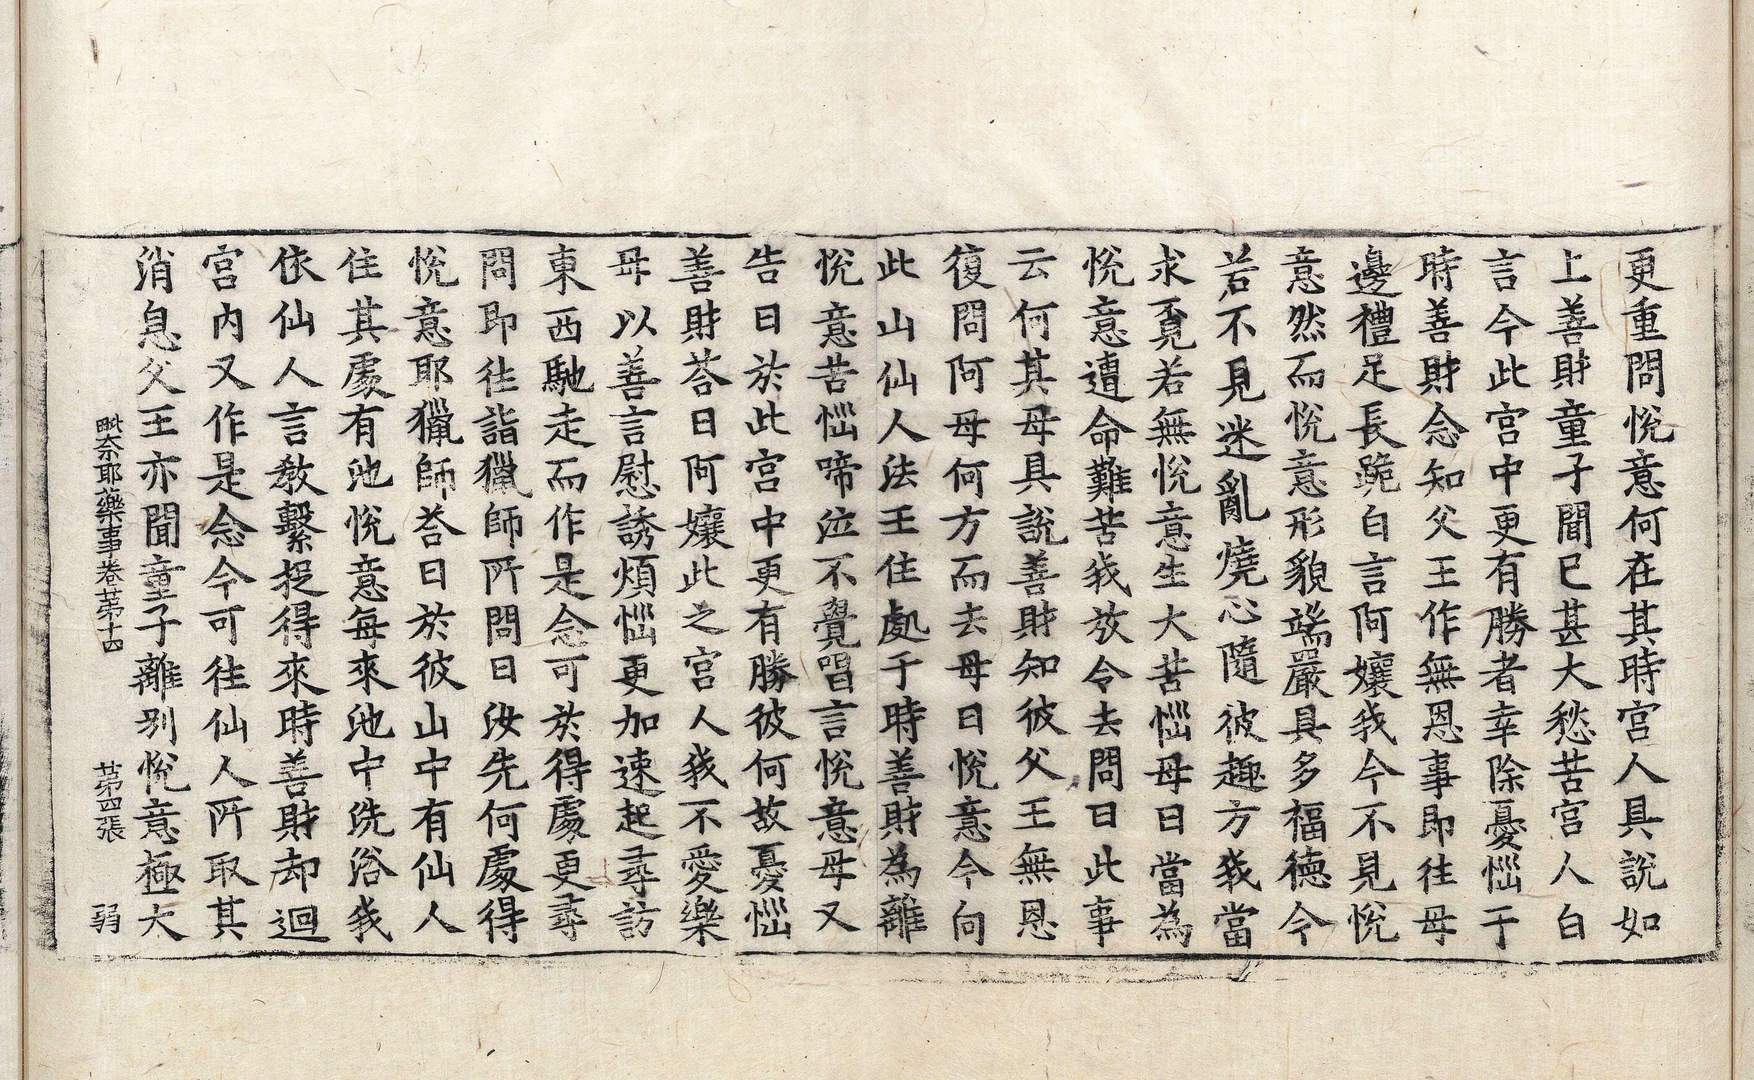 更重問悅意何在其時宮人具說如
上善財童子聞已甚大愁苦宮人白
言今此宮中更有勝者幸除憂惱于
時善財念知父王作無恩事即往母
邊禮足長跪白言阿孃我今不見悅
意然而悅意形貌端嚴具多福德今
若不見迷亂燒心隨彼趣方我當
求覓若無悅意生大苦惱母曰當為
悅意遭命難苦我放令去問曰此事
云何其母具說善財知彼父王無恩
復問阿母何方而去母曰悅意今向
此山仙人法王住處于時善財為離
悅意苦惱啼泣不覺唱言悅意母又
告曰於此宮中更有勝彼何故憂惱
善財荅曰阿孃此之宮人我不愛樂
母以善言慰誘煩惱更加速起尋訪
東西馳走而作是念可於得處更尋
問即往詣獵師所問曰汝先何處得
悅意耶獵師荅曰於彼山中有仙人
住其處有池悅意每來池中洗浴我
依仙人言教繫捉得來時善財却迴
宮內又作是念今可往仙人所取其
消息父王亦聞童子離別悅意極大
毗奈耶藥事卷苐十四 苐四張 弱